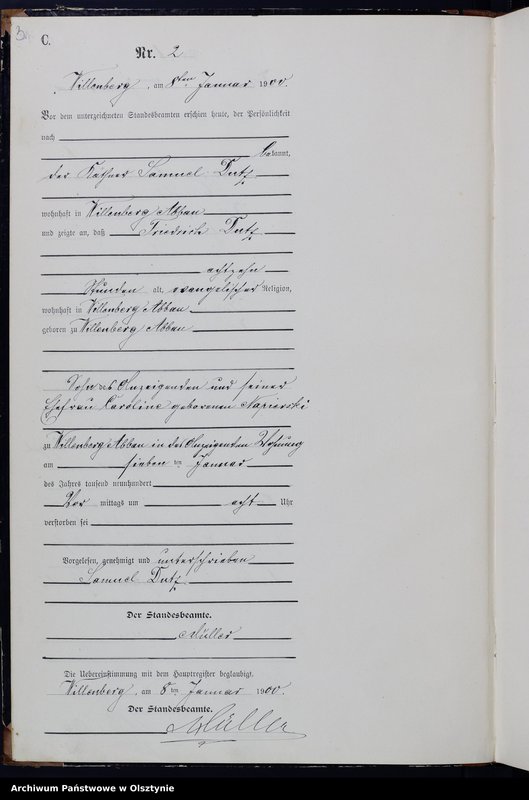 C.
Nr. 2
Willenberg, am 8ten Januar 1900.
Vor dem unterzeichneten Standesbeamten erschien heute, der Persönlichkeit
nach
bekannt,
der Käthner Samuel Dutz
wohnhaft in Willenberg Abbau
und zeigte an, daß Friedrich Dutz
achtzehn
Stunden alt, evangelischer Religion,
wohnhaft in Willenberg Abbau
geboren zu Willenberg Abbau
Sohn des Anzeigenden und seiner
Ehefrau Caroline geborenen Napierski
zu Willenberg Abbau in des Anzeigenden Wohnung
am sieben ten Januar
des Jahres tausend neunhundert
Vor mittags um acht Uhr
verstorben sei
Vorgelesen, genehmigt und unterschrieben
Samuel Dutz
Der Standesbeamte.
Müller
Die Uebereinstimmung mit dem Hauptregister beglaubigt.
Willenberg, am 8ten Januar 1900.
Der Standesbeamte.
Müller
Archiwum Państwowe w Olsztynie